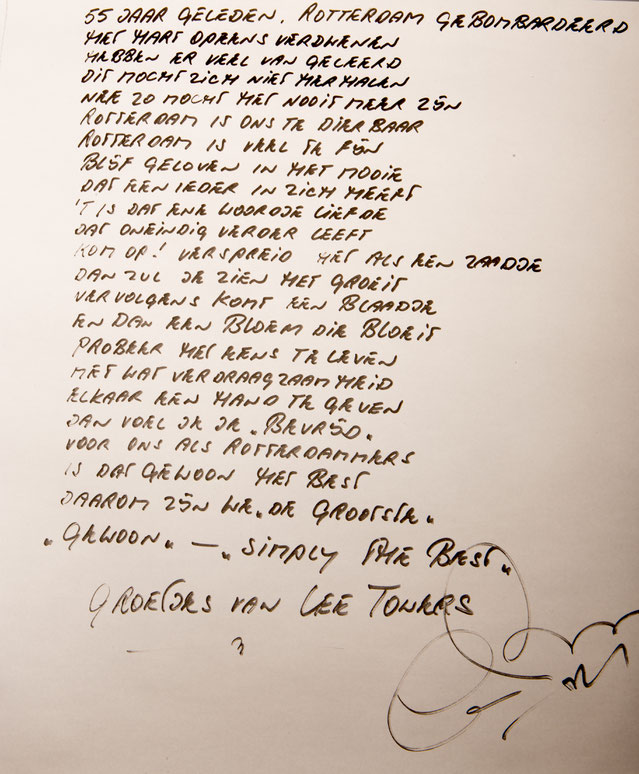 55 JAAR GELEDEN, ROTTERDAM GEBOMBARDEERD
HET HART OPEENS VERDWENEN
HEBBEN ER VEEL VAN GELEERD
DIT MOCHT ZICH NIET HERHALEN
NEE ZO MOCHT HET NOOIT MEER ZIJN
ROTTERDAM IS ONS TE DIERBAAR
ROTTERDAM IS VEEL TE FIJN
BLIJF GELOVEN IN HET MOOIE
DAT EEN IEDER IN ZICH HEEFT
'T IS DAT ENE WOORDJE LIEFDE
DAT ONEINDIG VERDER LEEFT
KOM OP! VERSPREID HET ALS EEN ZAADJE
DAN ZUL JE ZIEN HET GROEIT
VERVOLGENS KOMT EEN BLAADJE
EN DAN EEN BLOEM DIE BLOEIT
PROBEER HET EENS TE LEVEN
MET WAT VERDRAAGZAAMHEID
ELKAAR EEN HAND TE GEVEN
DAN VOEL JE JE „BEVRIJD„
VOOR ONS ALS ROTTERDAMMERS
IS DAT GEWOON HET BEST
DAAROM ZIJN WE „DE GROOTSTE„
„GEWOON„ — „SIMPLY THE BEST„
GROETJES VAN LEE TOWERS